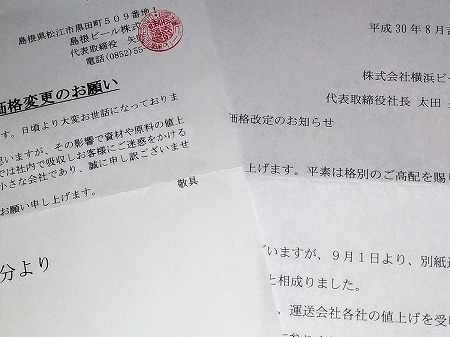 島根県松江市黒田町509番地1
島根ビール株式
代表取締役 矢野
電話(0852)55
価格変更のお願い
す。日頃より大変お世話になっておりま
思いますが、その影響で資材や原料の値上
では社内で吸収しお客様にご迷惑をかける
小さな会社であり、誠に申し訳ございませ
お願い申し上げます。
敬具
分より
平成30年8月吉
株式会社横浜ビー
代表取締役社長 太田
価格改定のお知らせ
上げます。平素は格別のご高配を賜り
ざいますが、9月1日より、別紙
と相成りました。
、運送会社各社の値上げを受け